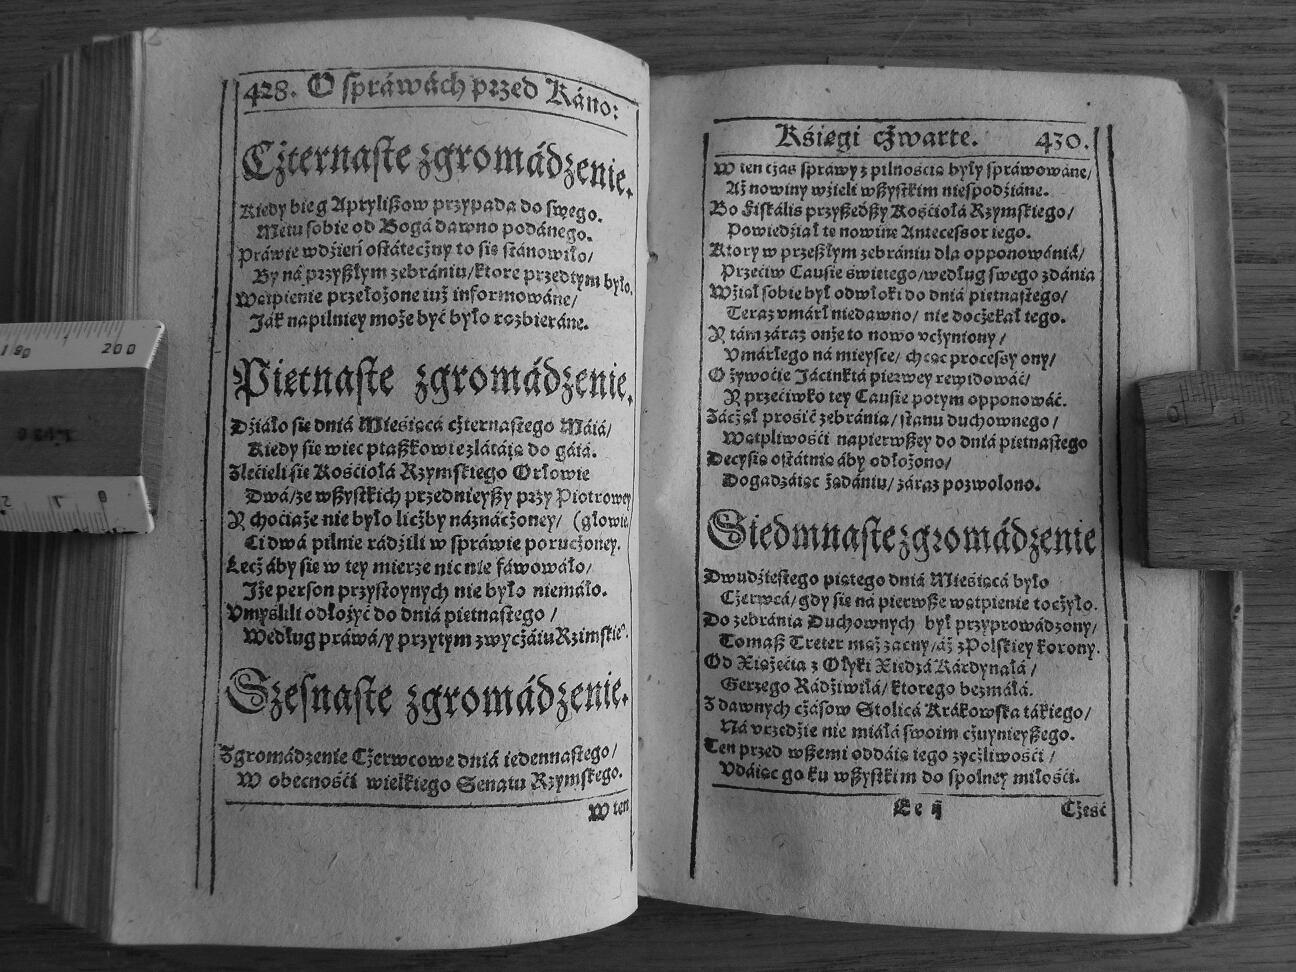 428. O spráwách przed Káno:
Cżternaste zgromádzenie.
Kiedy bieg Apryliszow przypada do swego.
Metu sobie od Bogá dawno podánego.
Práwie wdźień ostátecżny to sie stánowiło/
By ná przyszłym zebrániu/ktore przedtym było.
Wątpienie przełożone iuż informowáne/
Ják napilniey może być było rozbieráne.
Piętnaste zgromádzenie.
Dźiáło sie dniá Mieśiąca cżternastego Máiá/
Kiedy sie wiec ptaszkowie zlátáią do gáiá.
Zlećieli sie Kośćiołá Rzymskiego Orłowie
Dwá/ze wszystkich przednieyszy przy Piotrowey
Y choćiaże nie było licżby náznácżoney/ (głowie/
Ci dwá pilnie rádźili w spráwie porucżoney.
Lecż áby sie w tey mierze nic nie fáwowáło/
Iże person przystoynych nie było niemáło.
Vmyślili odłożyć do dniá piętnastego /
Według práwá/y przytym zwycżáiu Rzimskie°.
Szesnaste zgromádzenie.
Zgromádzenie Cżerwcowe dniá iedennastego/
W obecnośći wielkiego Senatu Rzymskego.
W ten
Kśięgi cżwarte. 430.
W ten cżas sprawy z pilnośćią były spráwowáne/
Aż nowiny wźięli wszystkim niespodźiáne.
Bo Fiskális przyszedszy Kośćiołá Rzymskiego/
Powiedźiał te nowine Antecessor iego.
Ktory w przeszłym zebrániu dla opponowániá/
Przećiw Causie świętego/według swego zdánia
Wźiął sobie był odwłoki do dniá piętnastego/
Teraz vmárł niedawno/ nie docżekał tego.
Y tám záraz onże to nowo vcżyniony /
Vmárłego ná mieysce/ chcąc processy ony/
O żywoćie Jácinktá pierwey rewidowáć/
Y przećiwko tey Causie potym opponowáć.
Zácżął prośić zebránia/ stanu duchownego /
Wątpliwośći napierwszey do dniá piętnastego
Decysią ostátnią áby odłożono/
Dogadzáiąc żądániu/ záraz pozwolono.
Siedmnaste zgromádzenie
Dwudźiestego piątego dniá Mieśiącá było
Cżerwcá/ gdy sie ná pierwsze wątpienie tocżyło.
Do zebránia Duchownych był przyprowádzony/
Tomasz Treter mąż zacny/áż z Polskiey korony.
Od Xiążęćia z Ołyki Xiędzá Kárdynałá /
Gerzego Rádźiwiłá/ ktorego bezmáłá.
Z dawnych cżásow Stolicá Krákowska tákiego/
Ná vrzędźie nie miáłá swoim cżuynieyszego.
Ten przed wszemi oddáiąc iego zycżliwośći /
Vdáiąc go ku wszystkim do spolney miłośći.
Ee ij Cżeść